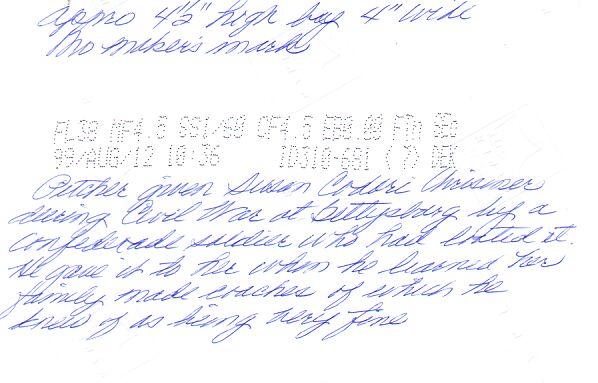 appro 4½" high by 4" wide
No maker's mark
FL38 MF4.5 SS1/60 OF4.5 EB0.00 Ftn SEO
99/AUG/12 10:36 ID310-691 (7) DEK
Pitcher given Susan Codori
during Civil War at Gettysburg by a
Confederate soldier who had looted it.
He gave it to her when he learned her
family made coaches of which he
knew of as being very fine